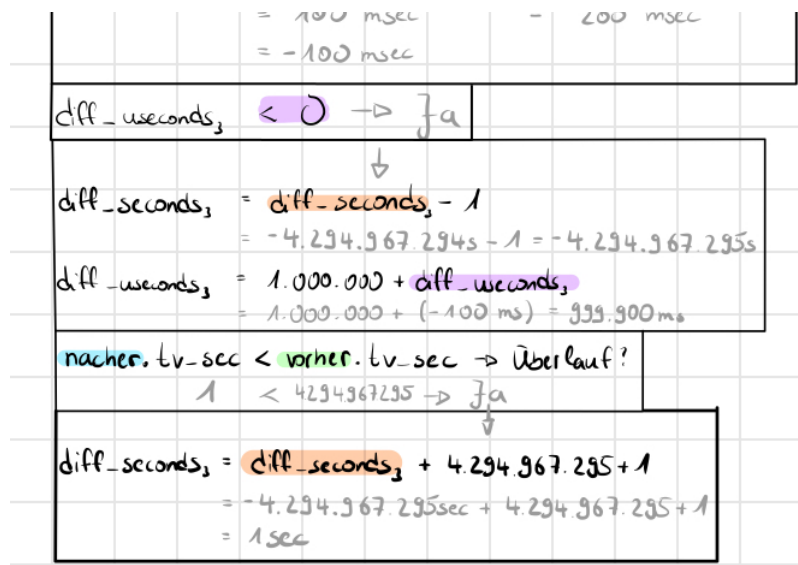 = 100 msec - 200 msec
= -100 msec
diff_useconds₃ < 0 → Ja
↓
diff_seconds₃ = diff_seconds₃ - 1
= -4.294.967.294s - 1 = -4.294.967.295s
diff_useconds₃ = 1.000.000 + diff_useconds₃
= 1.000.000 + (-100 ms) = 999.900ms
nacher.tv_sec < vorher.tv_sec → Überlauf?
1 < 4294967295 → Ja
↓
diff_seconds₃ = diff_seconds₃ + 4.294.967.295 + 1
= -4.294.967.295sec + 4.294.967.295 + 1
= 1 sec